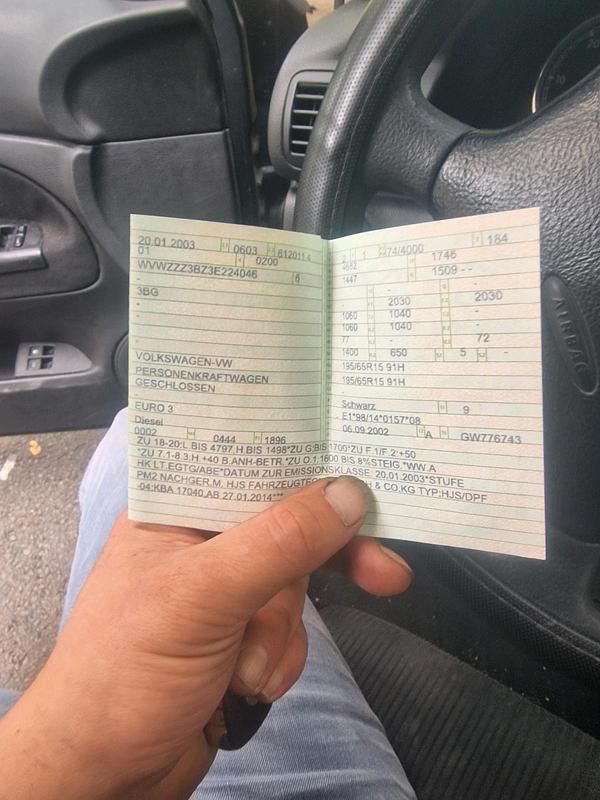 20.01.2003 0603 8120114
01 0200
WVWZZZ3BZ3E224046 6
-
3BG
-
-
-
VOLKSWAGEN-VW
PERSONENKRAFTWAGEN
GESCHLOSSEN
-
EURO 3
Diesel
0002 0444 1896
2 1 74/4000 184
4682 1746
1447 1509 - -
- -
2030 2030
1060 1040 -
1060 1040 -
77 72
1400 650 5 -
195/65R15 91H
195/65R15 91H
-
Schwarz 9
E1*98/14*0157*08
06.09.2002 A GW776743
ZU 18-20:L.BIS 4797,H.BIS 1498*ZU G:BIS 1700*ZU F.1/F.2:+50
*ZU 7.1-8.3:H.+40 B.ANH-BETR.*ZU O.1:1600 BIS 8%STEIG.*WW.A
HK LT.EGTG/ABE*DATUM ZUR EMISSIONSKLASSE: 20.01.2003*STUFE
PM2 NACHGER.M. HJS FAHRZEUGTE H & CO.KG TYP:HJS/DPF
-04:KBA 17040,AB 27.01.2014***
AIRBAG
20
10